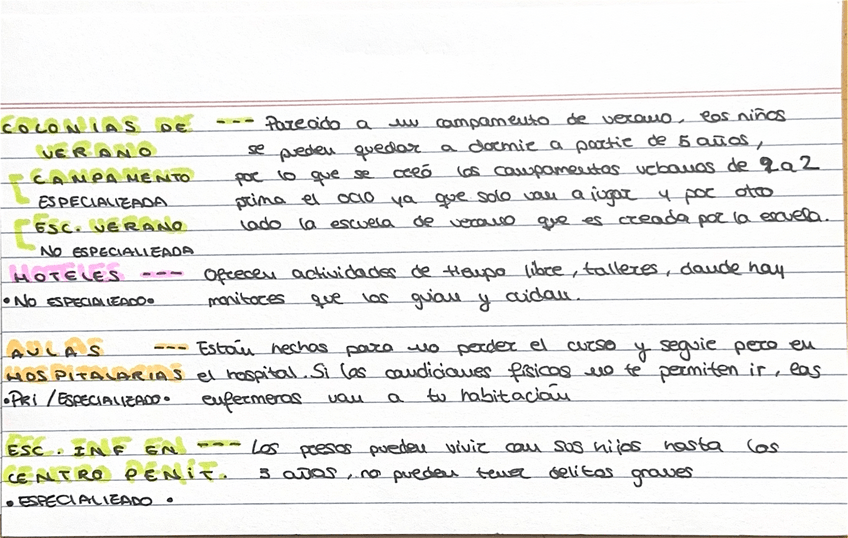 COLONIAS DE --- Parecido a un campamento de verano, los niños
VERANO se pueden quedar a dormir a partir de 5 años,
CAMPAMENTO por lo que se creó los campamentos urbanos de 9 a 2
ESPECIALIZADA prima el ocio ya que solo van a jugar y por otro
ESC. VERANO lado la escuela de verano que es creada por la escuela.
NO ESPECIALIZADA
HOTELES --- Ofrecen actividades de tiempo libre, talleres, donde hay
• NO ESPECIALIZADO • monitores que los guian y cuidan.
AULAS --- Están hechas para no perder el curso y seguir pero en
HOSPITALARIAS el hospital. Si las condiciones físicas no te permiten ir, las
• PRI / ESPECIALIZADO • enfermeras van a tu habitación
ESC. INF EN --- Los presos pueden vivir con sus hijos hasta los
CENTRO PENIT. 3 años, no pueden tener delitos graves
• ESPECIALIZADO •